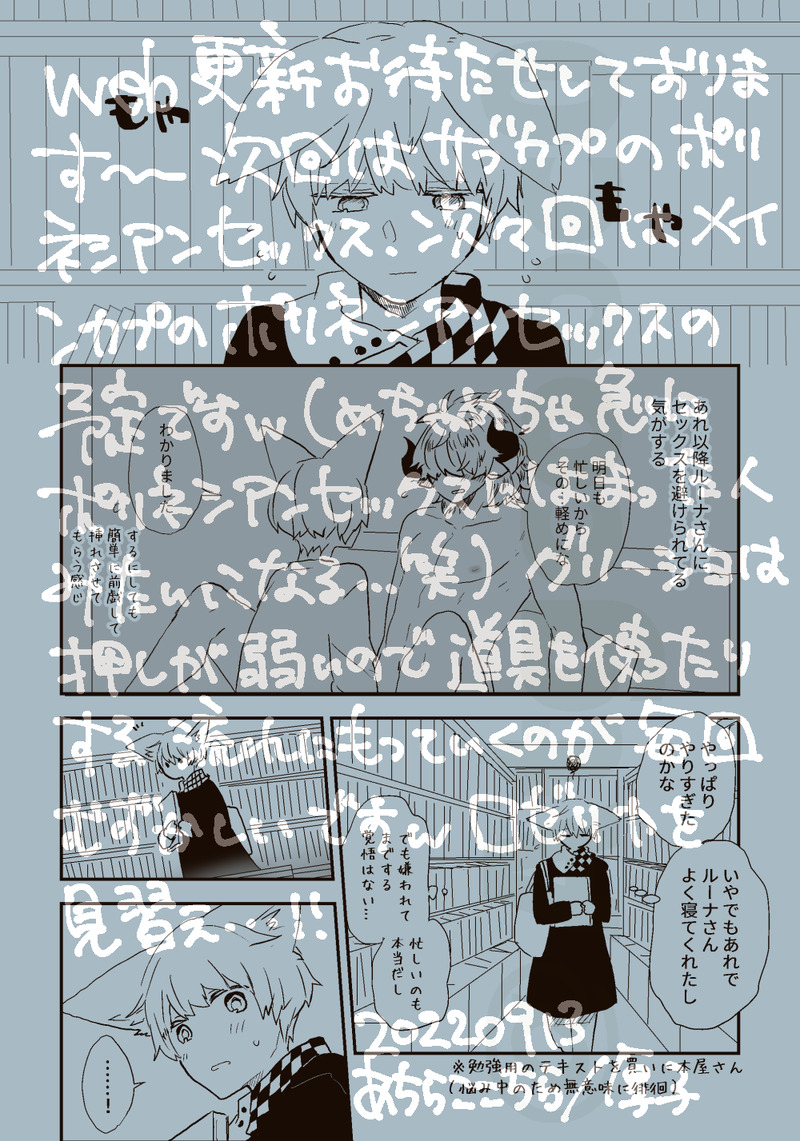 web更新お待たせしておりま
す〜次回はサブカプのポリ
ネシアンセックス、次々回はメイ
ンカプのポリネシアンセックスの
予定ですw(めちゃめちゃ急に
ポリネシアンセックス
みたいになる…(笑)グリーショは
押しが弱いので道具を使ったり
する流れにもっていくのが毎回
むずかしいですw ロゼリヤを
見習え…!!
20220913
もや
もや
あれ以降ルーナさんに
セックスを避けられてる
気がする
明日も
忙しいから
その…軽めにな
わかりました
するにしても
簡単に前戯して
挿れさせて
もらう感じ
やっぱり
やりすぎた
のかな
いやでもあれで
ルーナさん
よく寝てくれたし
でも嫌われて
までする
覚悟はない…
忙しいのも
本当だし
※勉強用のテキストを買いに本屋さん
(悩み中のため無意味に徘徊)
……!